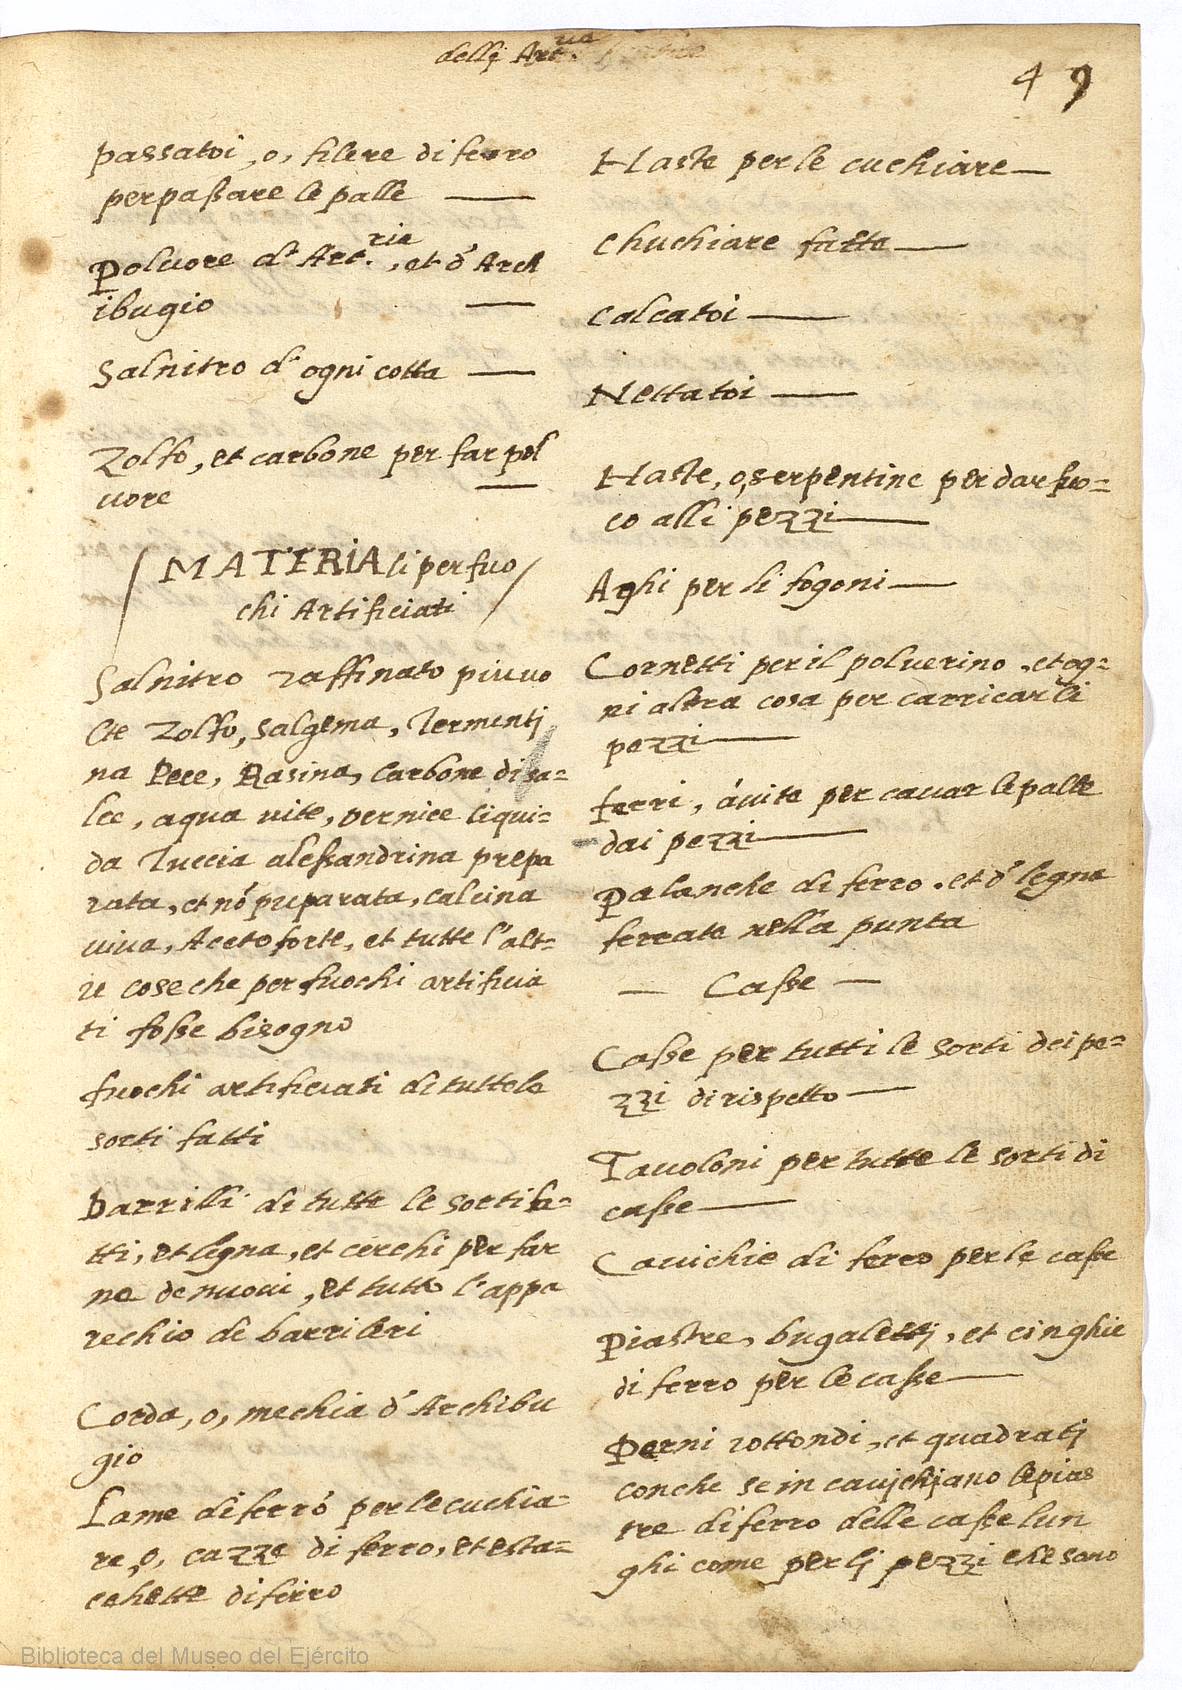 dellj Art.ria
49
passatoi, o, filere di ferro
per paßare le palle
Poluore d' Art.ria, et d' Arch
ibugio
Salnitro d' ogni cotta
Zolfo, et carbone per far pol
uore
MATERIAli per fuo
chi Artificiati
Salnitro raffinato piu uo
lte Zolfo, salgema, Termentj
na Pece, Rasina, carbone di sa=
lce, aqua uite, vernice liqui=
da Tuccia aleßandrina prepa
rata, et nó preparata, calcina
uiua, Aceto forte, et tutte l'alt=
re cose che per fuochi artificia
ti foße bisogno
fuochi artificiati di tutte le
sorti fatti
Barrilli di tutte le sorti fa=
tti, et legna, et cerchi per far
ne de nuoui, et tutto l'appa
rechio de barrileri
Corda, o, mechia d' Archibu
gio
Lame di ferro per le cuchia=
re, o, cazze di ferro, et esta=
chette di ferro
Haste per le cuchiare
Chuchiare fatte
Calcatoi
Nettatoi
Haste, o, serpentine per dar fuo=
co alli pezzi
Aghi per li fogoni
Cornetti per il poluerino, et og=
ni altra cosa per carricar li
pezzi
ferri, á uite per cauar le palle
dai pezzi
Palanche di ferro, et d' legna
ferrate nella punta
Caße
Caße per tutti le sorti dei pe=
zzi di rispetto
Tauoloni per tutte le sorti di
caße
Cauichie di ferro per le caße
Piastre, bugalettj, et cinghie
di ferro per le caße
Perni rottondi, et quadratj
con che se in cauichjano le pias
tre di ferro delle caße lun
ghi come per lj pezzi che sono
Biblioteca del Museo del Ejército